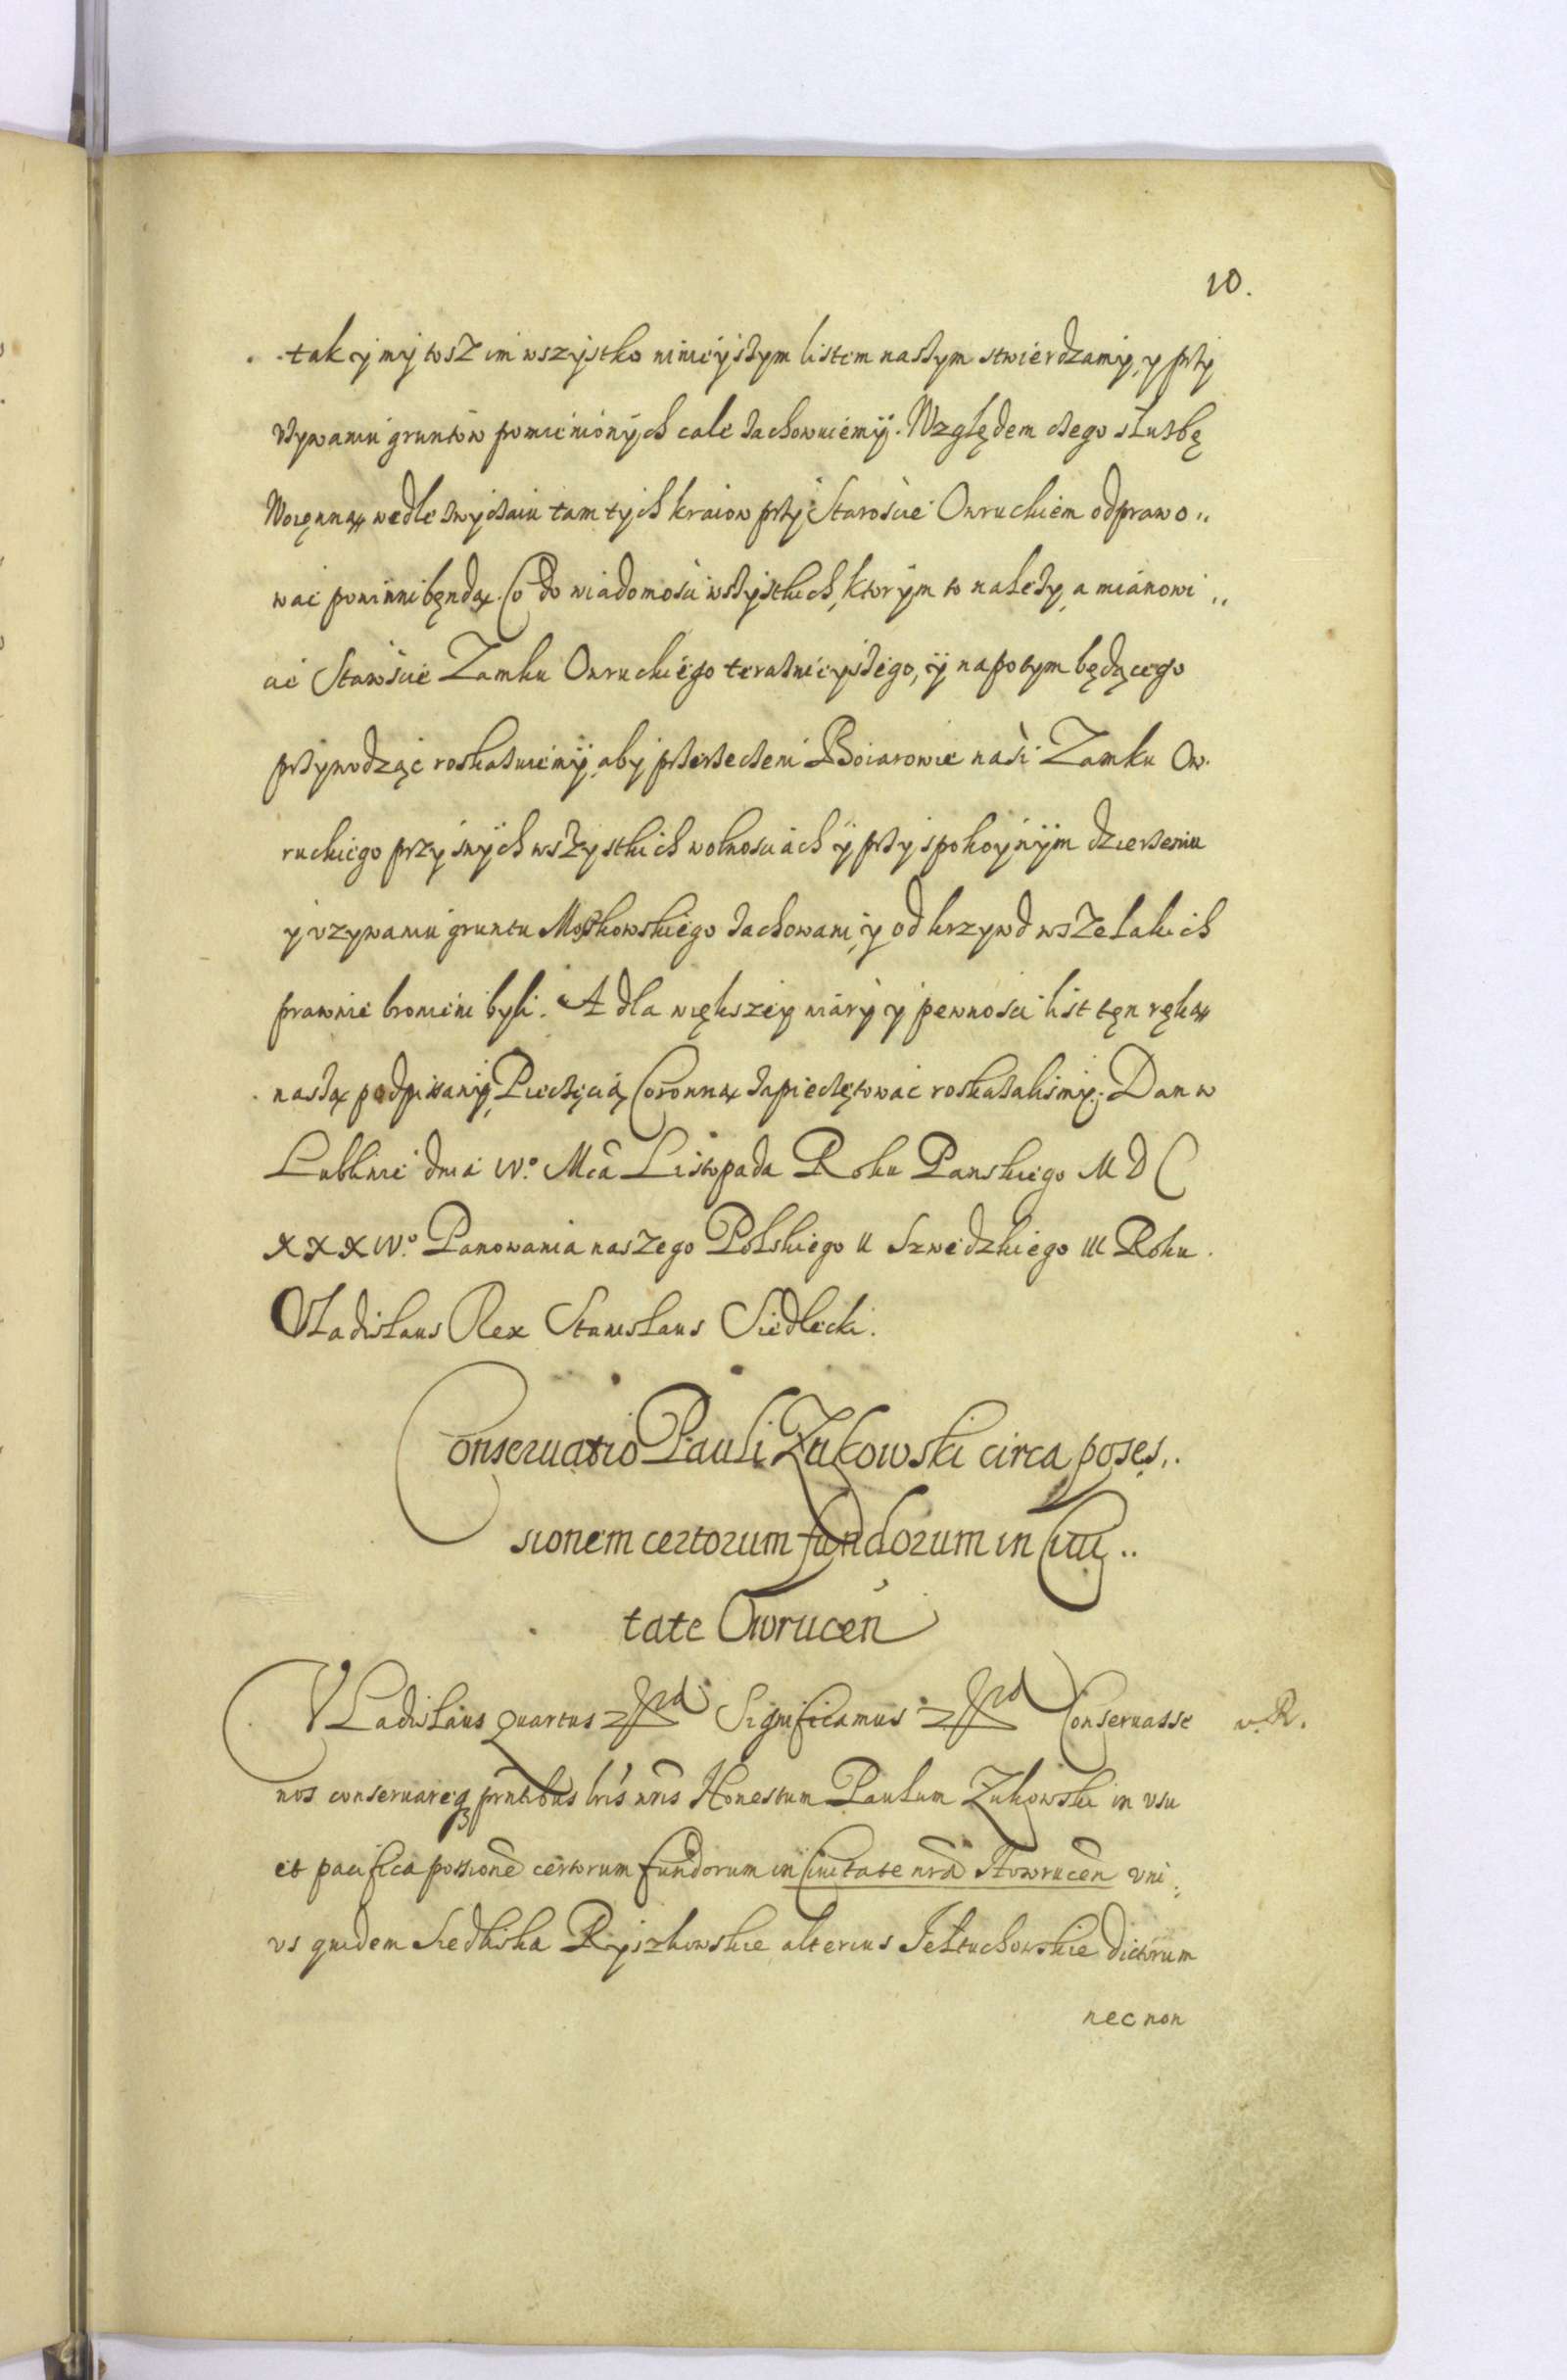 10.
tak y my tosz im wszystko ninieyszym listem naszym stwierdzamy, y przy
vzywaniu gruntow pomienionych cale zachowuiemy. Względem czego służbę
Woięnną wedle zwyczaiu tamtych kraiow przy Starośćie Owruckiem odprawo„
wać powinni bęndą. Co do wiadomośći wszystkich, ktorym to należy, a mianowi„
ćie Starośćie Zamku Owruckiego teraznieyszego, y napotym będącego
przywodząc roskazuiemy, aby przerzeczeni Boiarowie naśi Zamku Ow.
ruckiego przy swych wszystkich wolnośćiach y przy spokoynym dzierzeniu
y vzywaniu gruntu Moszkowskiego zachowani, y od krzywd wszelakich
prawnie bronieni byli. A dla większey wiary y pewnośći list tęn ręką
naszą podpisany, Pieczęćią Coronną zapieczętować roskazaliśmy. Dan w
Lublinie dnia IV.º Mcâ Listopada Roku Panskiego M D C
XXXIV.º Panowania naszego Polskiego II Szwedzkiego III Roku.
Vladislaus Rex Stanislaus Siedlecki.
Conseruatio Pauli Zukowski circa poses„
sionem certorum fundorum in Ciui„
tate Owruceñ
VLadislaus Quartus Significamus Conseruasse v. R.
nos conseruareq prntibus lris nris Honestum Paulum Zukowski in vsu
et pacifica possione certorum fundorum in Ciuitate nra Howrucen vni„
vs quidem Siedliska Ryszkowskie alterius Jełtuchowskie dictorum
nec non